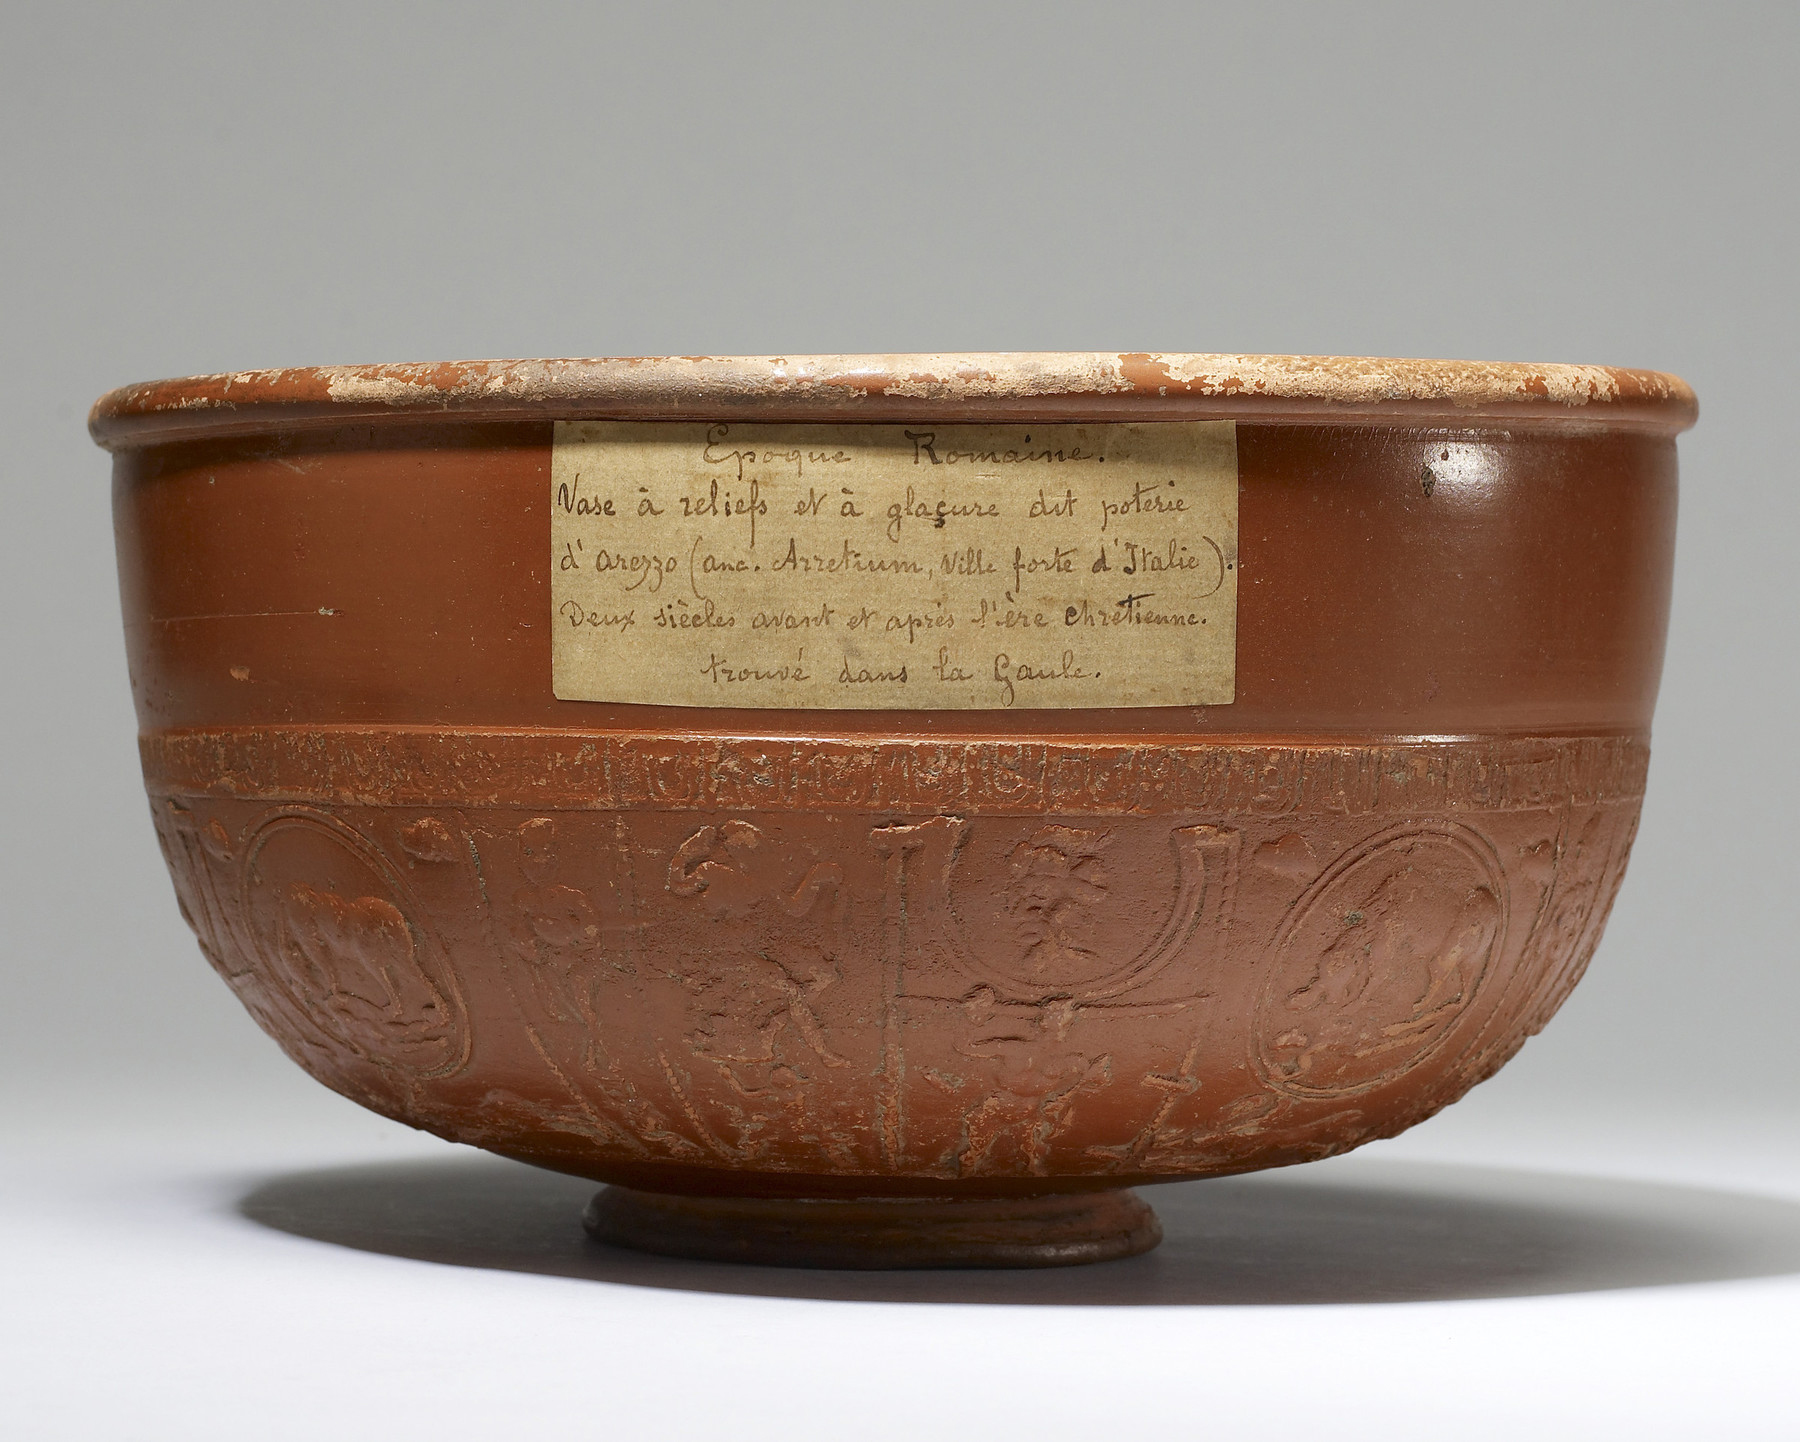 Epoque Romaine.
Vase à reliefs et à glaçure dit poterie
d'Arezzo (anc. Arretium, Ville forte d'Italie).
Deux siècles avant et après l'ère chretienne.
trouvé dans la Gaule.